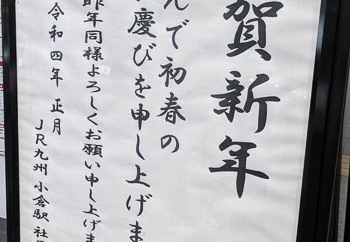 賀新年
んで初春の
慶びを申し上げま
昨年同様よろしくお願い申し上げま
令和四年 正月
JR九州 小倉駅 社員